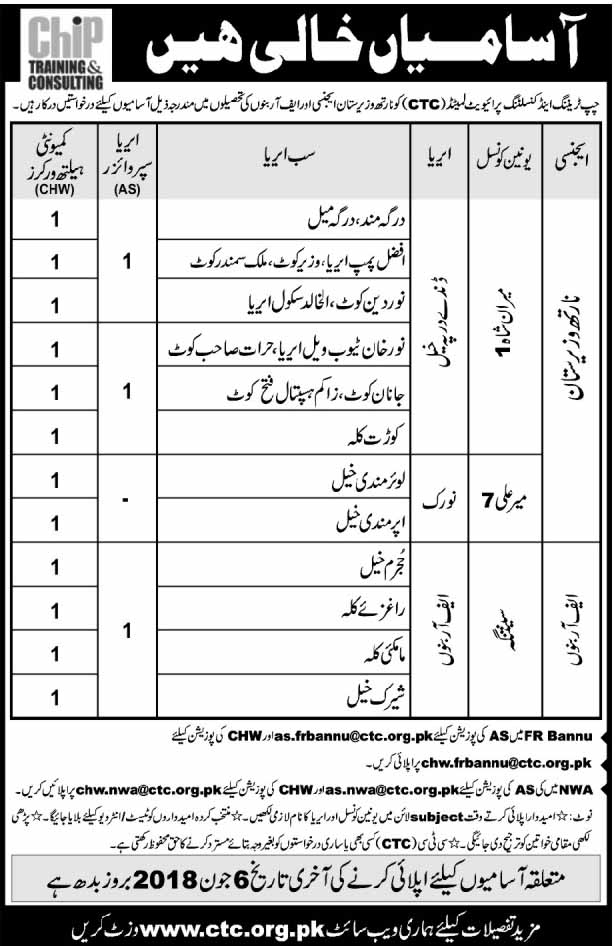 ChiP
TRAINING &
CONSULTING
آسامیاں خالی ہیں
چپ ٹریننگ اینڈ کنسلٹنگ پرائیویٹ لمیٹڈ (CTC) کو نارتھ وزیرستان ایجنسی اور ایف آر بنوں کی تحصیلوں میں مندرجہ ذیل آسامیوں کیلئے درخواستیں درکار ہیں۔
ایجنسی یونین کونسل ایریا سب ایریا ایریا سپروائزر (AS) کمیونٹی ہیلتھ ورکرز (CHW)
نارتھ وزیرستان میران شاہ 1 ڈنڈے درپہ خیل درگہ مند، درگہ میل 1 1
افضل پمپ ایریا، وزیر کوٹ، ملک سمندر کوٹ 1
نوردین کوٹ، الخالد سکول ایریا 1
نور خان ٹیوب ویل ایریا، حرات صاحب کوٹ 1 1
جانان کوٹ، زاکم ہسپتال فتح کوٹ 1
کوڑت کلہ 1
میر علی 7 نورک لوئر مندی خیل - 1
اپر مندی خیل 1
ایف آر بنوں ایف آر بنوں مُجرم خیل 1 1
راغزئے کلہ 1
مامکئی کلہ 1
شیرک خیل 1
FR Bannu میں AS کی پوزیشن کیلئے as.frbannu@ctc.org.pk اور CHW کی پوزیشن کیلئے
chw.frbannu@ctc.org.pk پر اپلائی کریں۔
NWA میں کی AS کی پوزیشن کیلئے as.nwa@ctc.org.pk اور CHW کی پوزیشن کیلئے chw.nwa@ctc.org.pk پر اپلائیں کریں۔
نوٹ: ☆ امیدوار اپلائی کرتے وقت subject لائن میں یونین کونسل اور ایریا کا نام لازمی لکھیں۔ ☆ منتخب کردہ امیدواروں کو ٹیسٹ/انٹرویو کیلئے بلایا جائیگا۔ ☆ پڑھی
لکھی مقامی خواتین کو ترجیح دی جائیگی۔ ☆ سی ٹی سی (CTC) کسی بھی یا ساری درخواستوں کو بغیر وجہ بتائے مسترد کرنے کا حق محفوظ رکھتی ہے۔
متعلقہ آسامیوں کیلئے اپلائی کرنے کی آخری تاریخ 6 جون 2018 بروز بدھ ہے
مزید تفصیلات کیلئے ہماری ویب سائٹ www.ctc.org.pk وزٹ کریں